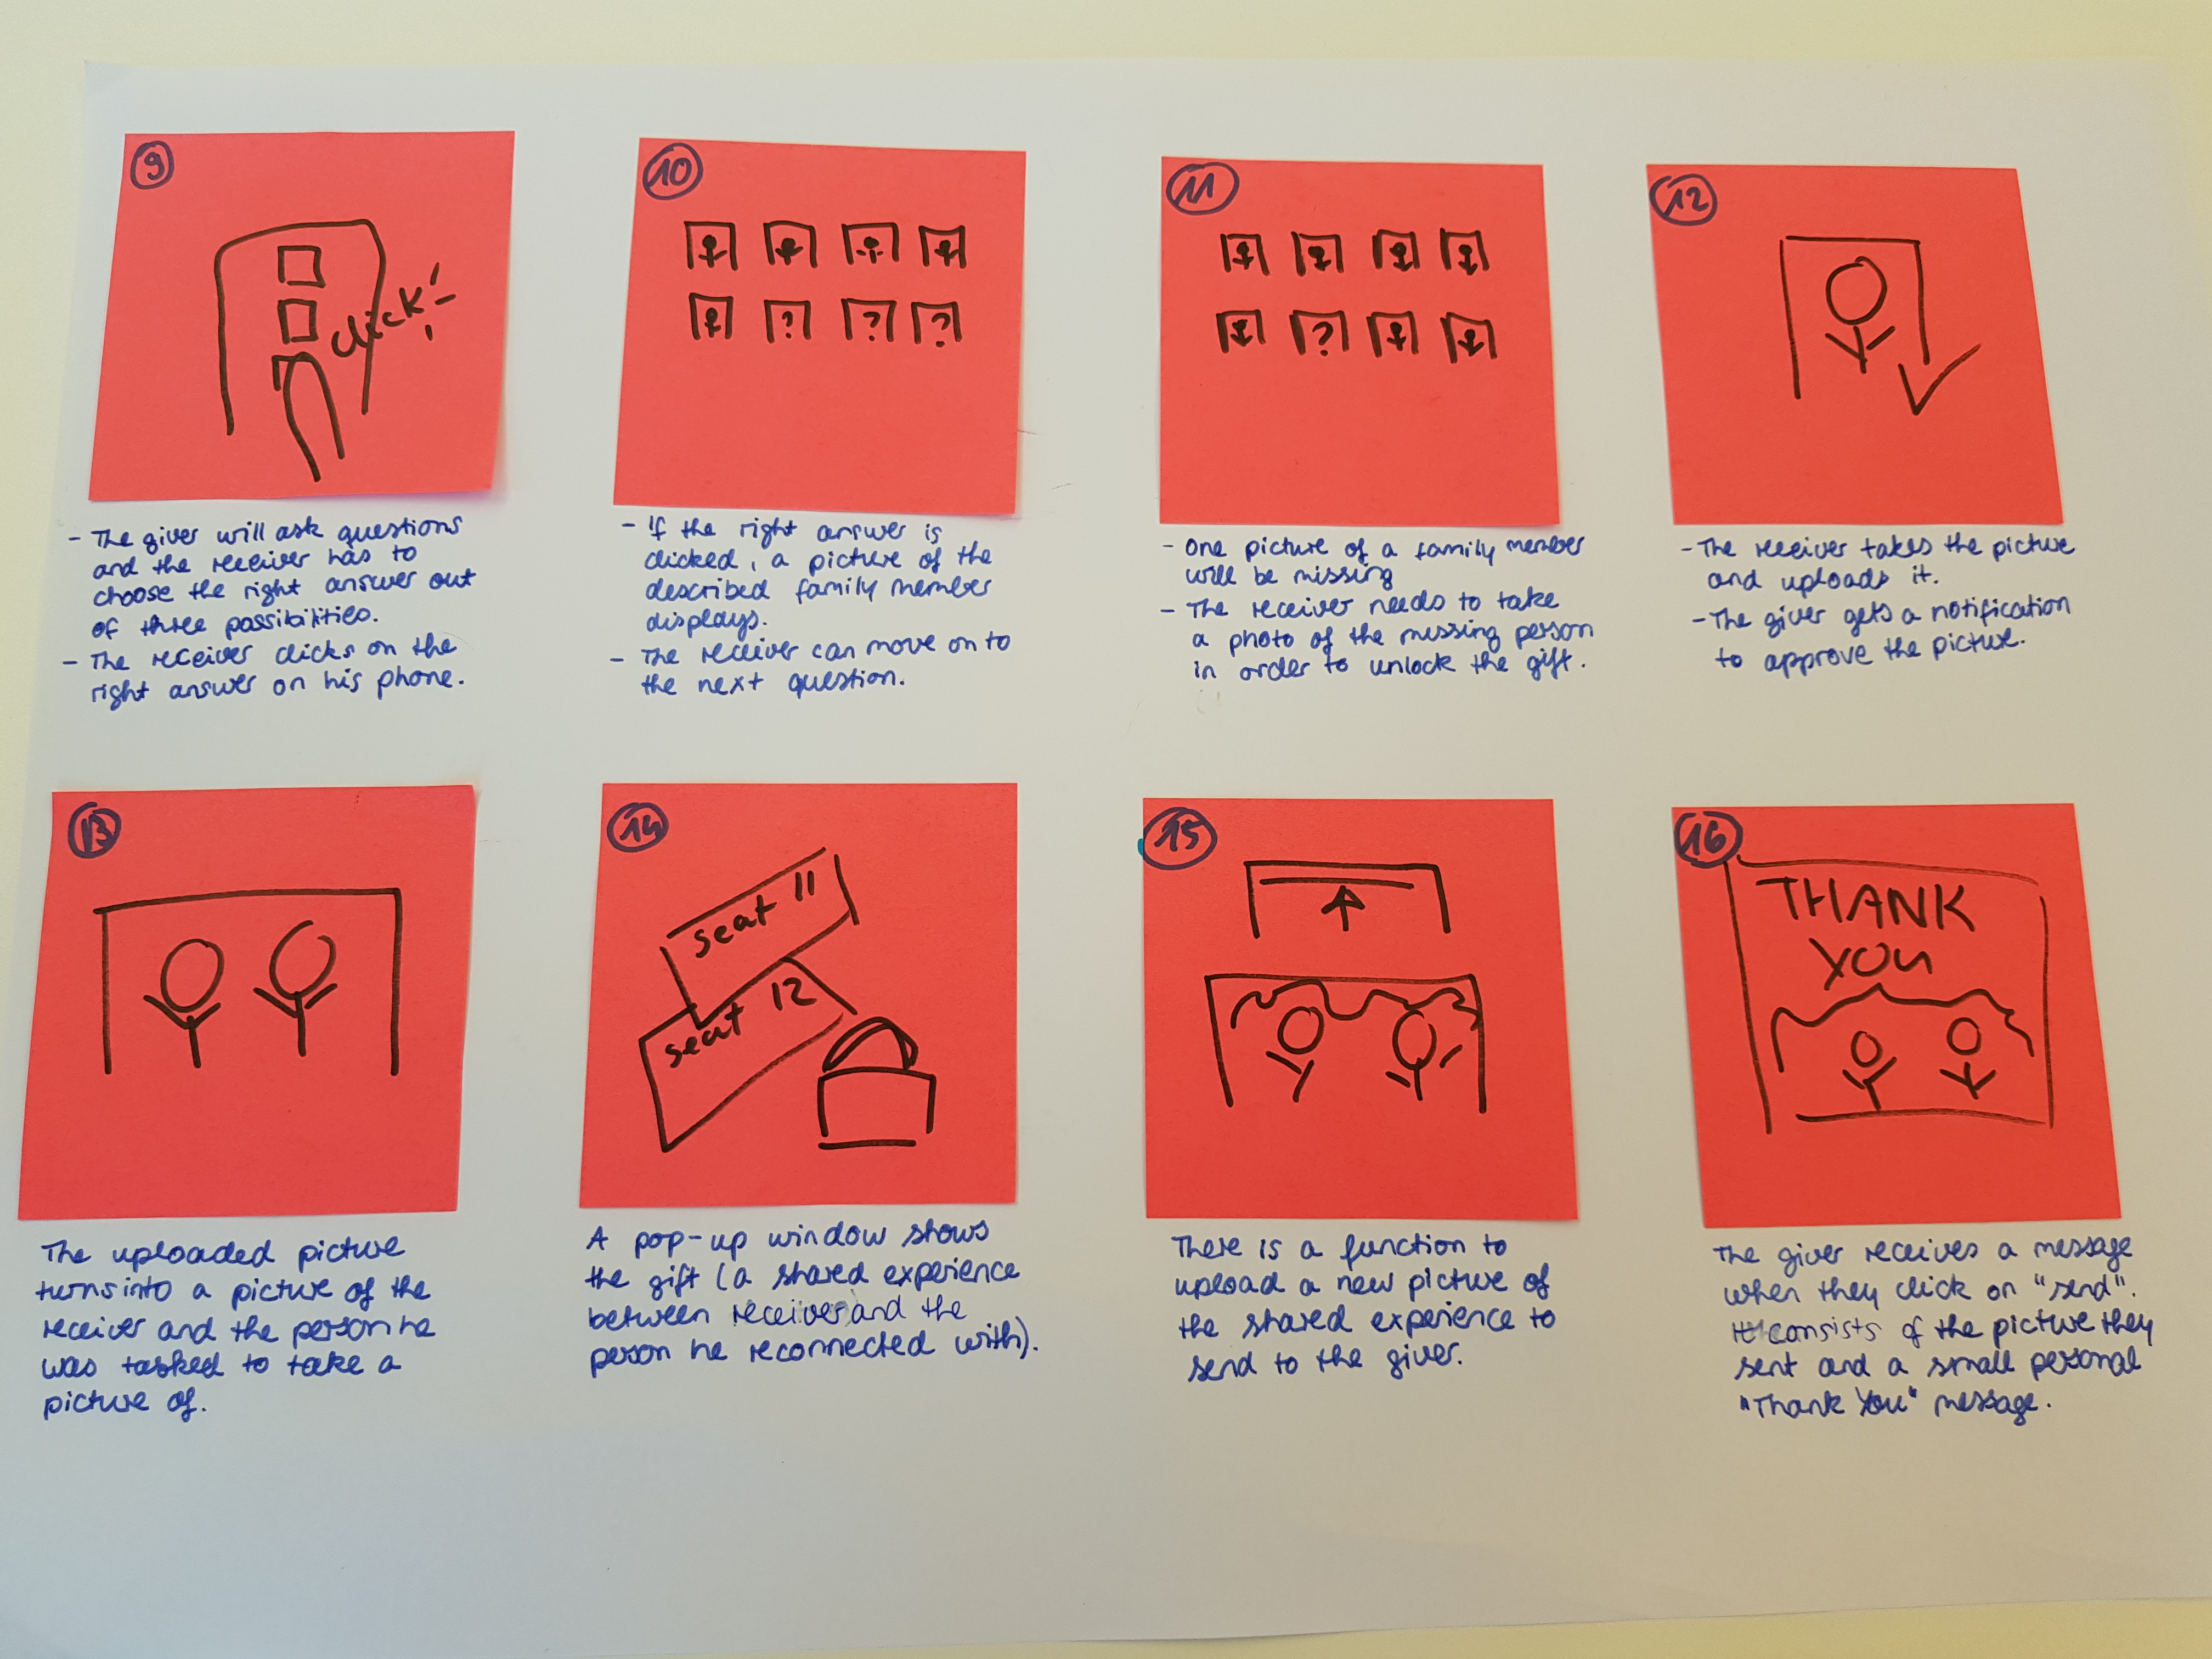 9
click
- The giver will ask questions
and the receiver has to
choose the right answer out
of three possibilities.
- The receiver clicks on the
right answer on his phone.
10
? ? ?
- if the right answer is
clicked, a picture of the
described family members
displays.
- The receiver can move on to
the next question.
11
?
- One picture of a family member
will be missing
- The receiver needs to take
a photo of the missing person
in order to unlock the gift.
12
- The receiver takes the picture
and uploads it.
- The giver gets a notification
to approve the picture.
13
The uploaded picture
turns into a picture of the
receiver and the person he
was tasked to take a
picture of.
14
seat 11
seat 12
A pop-up window shows
the gift (a shared experience
between receiver and the
person he reconnected with).
15
There is a function to
upload a new picture of
the shared experience to
send to the giver.
16
THANK
YOU
The giver receives a message
when they click on "send".
It consists of the picture they
sent and a small personal
"Thank You" message.